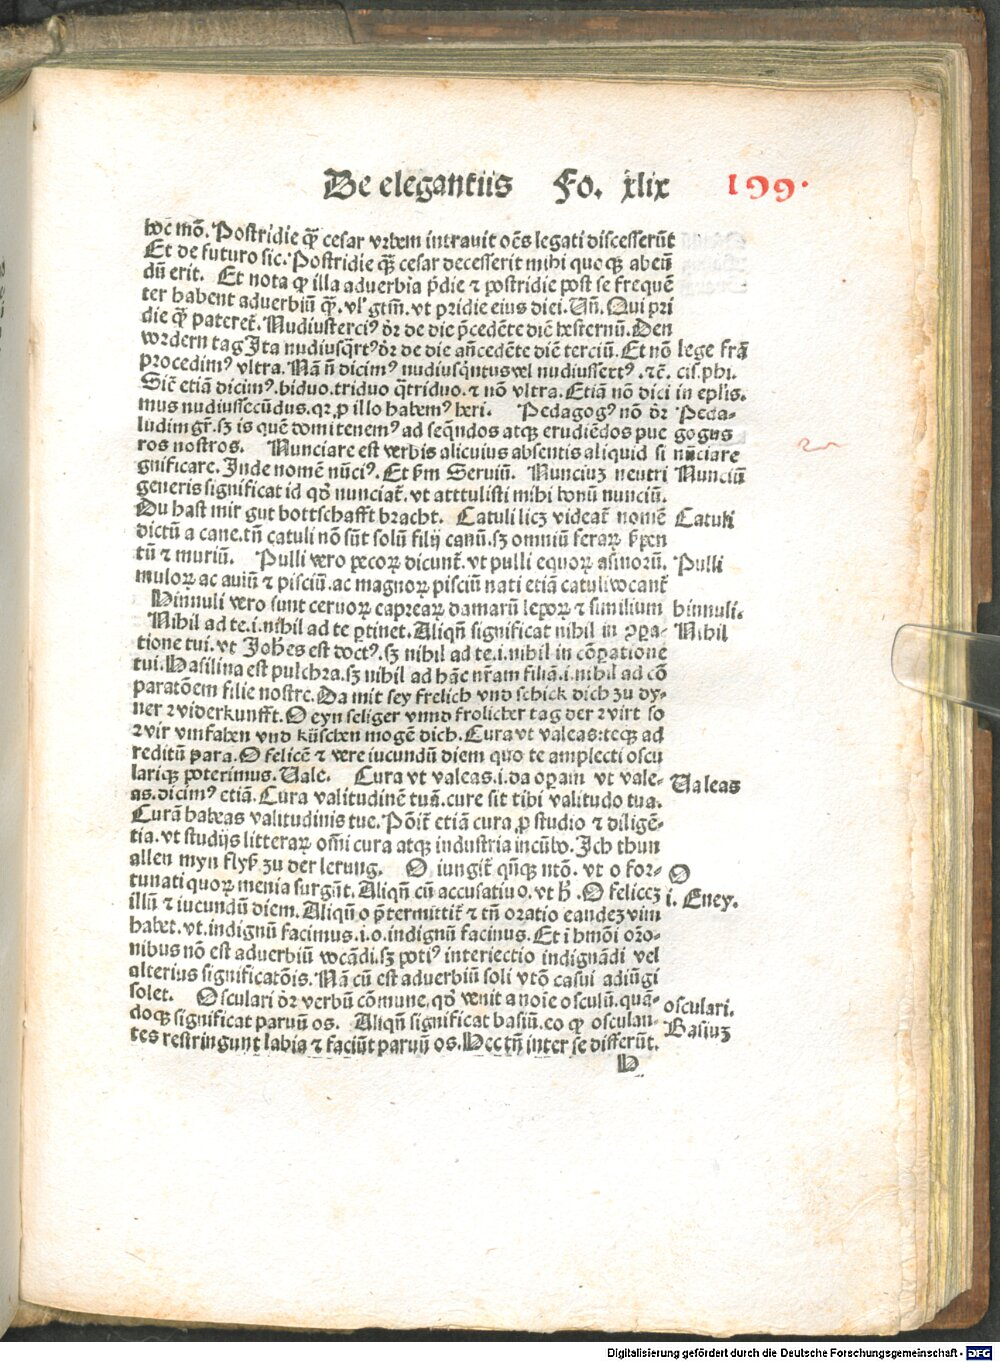 De elegantiis Fo. xlix 199.
hoc̄ mō. Postridie qƺ cesar vrbem intrauit oēs legati discesserūt
Et de futuro sic. Postridie qƺ cesar decesserit mihi quoqƺ abeū
dū erit. Et nota qp illa aduerbia p̄die ⁊ postridie post se frequē
ter habent aduerbiū qƺ. vl' gtm̄. vt pridie eius diei. Uñ. Qui pri
die qƺ pateret̄. Nudiusterciꝰ ōr de die p̄cedēte diē hesternū. Den
vordern tag Ita nudiusqr̄tꝰ ōr de die añcedēte diē terciū. Et nō
procedimꝰ vltra. Nā ñ dicimꝰ nudiusqīntus vel nudiussextꝰ .⁊c̄.
Sic̄ etiā dicimꝰ. biduo. triduo q̄triduo. ⁊ nō vltra. Etiā nō dici
mus nudiussecūdus. qr ꝓ illo habemꝰ heri. Pedagogꝰ nō ōr
ludimgr̄. sƺ is quē domi tenemꝰ ad seqn̄dos atqƺ erudiēdos pue
ros nostros. Nunciare est verbis alicuius absentis aliquid si
gnificare. Inde nomē nūciꝰ. Et ẜm Seruiū. Nunciuƺ neutri
generis significat id qō nunciat̄. vt atttulisti mihi bonū nunciū.
Du hast mir gut bottschafft bracht. Catuli licƺ videat̄ nomē
dictū a cane. tñ catuli nō sūt solū filij canū. sƺ omniū feraꝝ ẜpen
tū ⁊ muriū. Pulli vero pecoꝝ dicunt̄. vt pulli equoꝝ asinorū.
muloꝝ ac auiū ⁊ pisciū. ac magnoꝝ pisciū nati etiā catuli vocant̄
Hinnuli vero sunt ceruoꝝ capreaꝝ damarū lepoꝝ ⁊ similium
Nihil ad te. i. nihil ad te ꝑtinet. Aliqñ significat nihil in ꝯꝑa-
tione tui. vt Joh̄es est doctꝰ. sƺ nihil ad te. i. nihil in cōꝑatione
tui. Basilina est pulchra. sƺ nihil ad hāc nr̄am filiā. i. nihil ad cō
paratōem filie nostre. Da mit sey frelich vnd schick dich zu dy-
ner widerkunfft. O eyn seliger vnnd frolicher tag der wirt so
wir vmfahen vnd küschen mogē dich. Cura vt valeas: teqƺ ad
reditū para. O felicē ⁊ vere iucundū diem quo te amplecti oscu
lariqƺ poterimus. Uale. Cura vt valeas. i. da oꝑam vt vale-
as. dicimꝰ etiā. Cura valitudinē tuā. cure sit tibi valitudo tua.
Curā habeas valitudinis tue. Pōit̄ etiā cura ꝓ studio ⁊ diligē-
tia. vt studijs litteraꝝ om̄i cura atqƺ industria incūbo. Ich thun
allen myn flyß zu der lerung. O iungit̄ qñqƺ ntō. vt o for-
tunati quoꝝ menia surgūt. Aliqñ cū accusatiuo. vt h̄. O feliceƺ
illū ⁊ iucundū diem. Aliqñ o p̄termittit̄ ⁊ tñ oratio eandeƺ vim
habet. vt. indignū facimus. i. o. indignū facinus. Et ī hmōi orō-
nibus nō est aduerbiū vocādi. sƺ potiꝰ interiectio indignādi vel
alterius significatōis. Nā cū est aduerbiū soli vtō casui adiūgi
solet. Osculari ōr verbū cōmune, qō venit a noīe osculū. quā-
doqƺ significat paruū os. Aliqñ significat basiū. eo qp osculan-
tes restringunt labia ⁊ faciūt paruū os. Hec tñ inter se differūt.
H
lege frā
cis. phi.
in eplis.
Peda-
gogus
nūciare
Nunciū
Catuli
Pulli
hinnuli.
Nihil
Ualeas
O
i. Eney.
osculari.
Basiuƺ
Digitalisierung gefördert durch die Deutsche Forschungsgemeinschaft - DFG